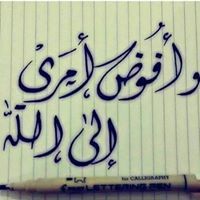 وَأُفَوِّضُ أَمْرِىْ
إِلىٰ اللّٰه
for CALLIGRAPHY
LETTERING PEN